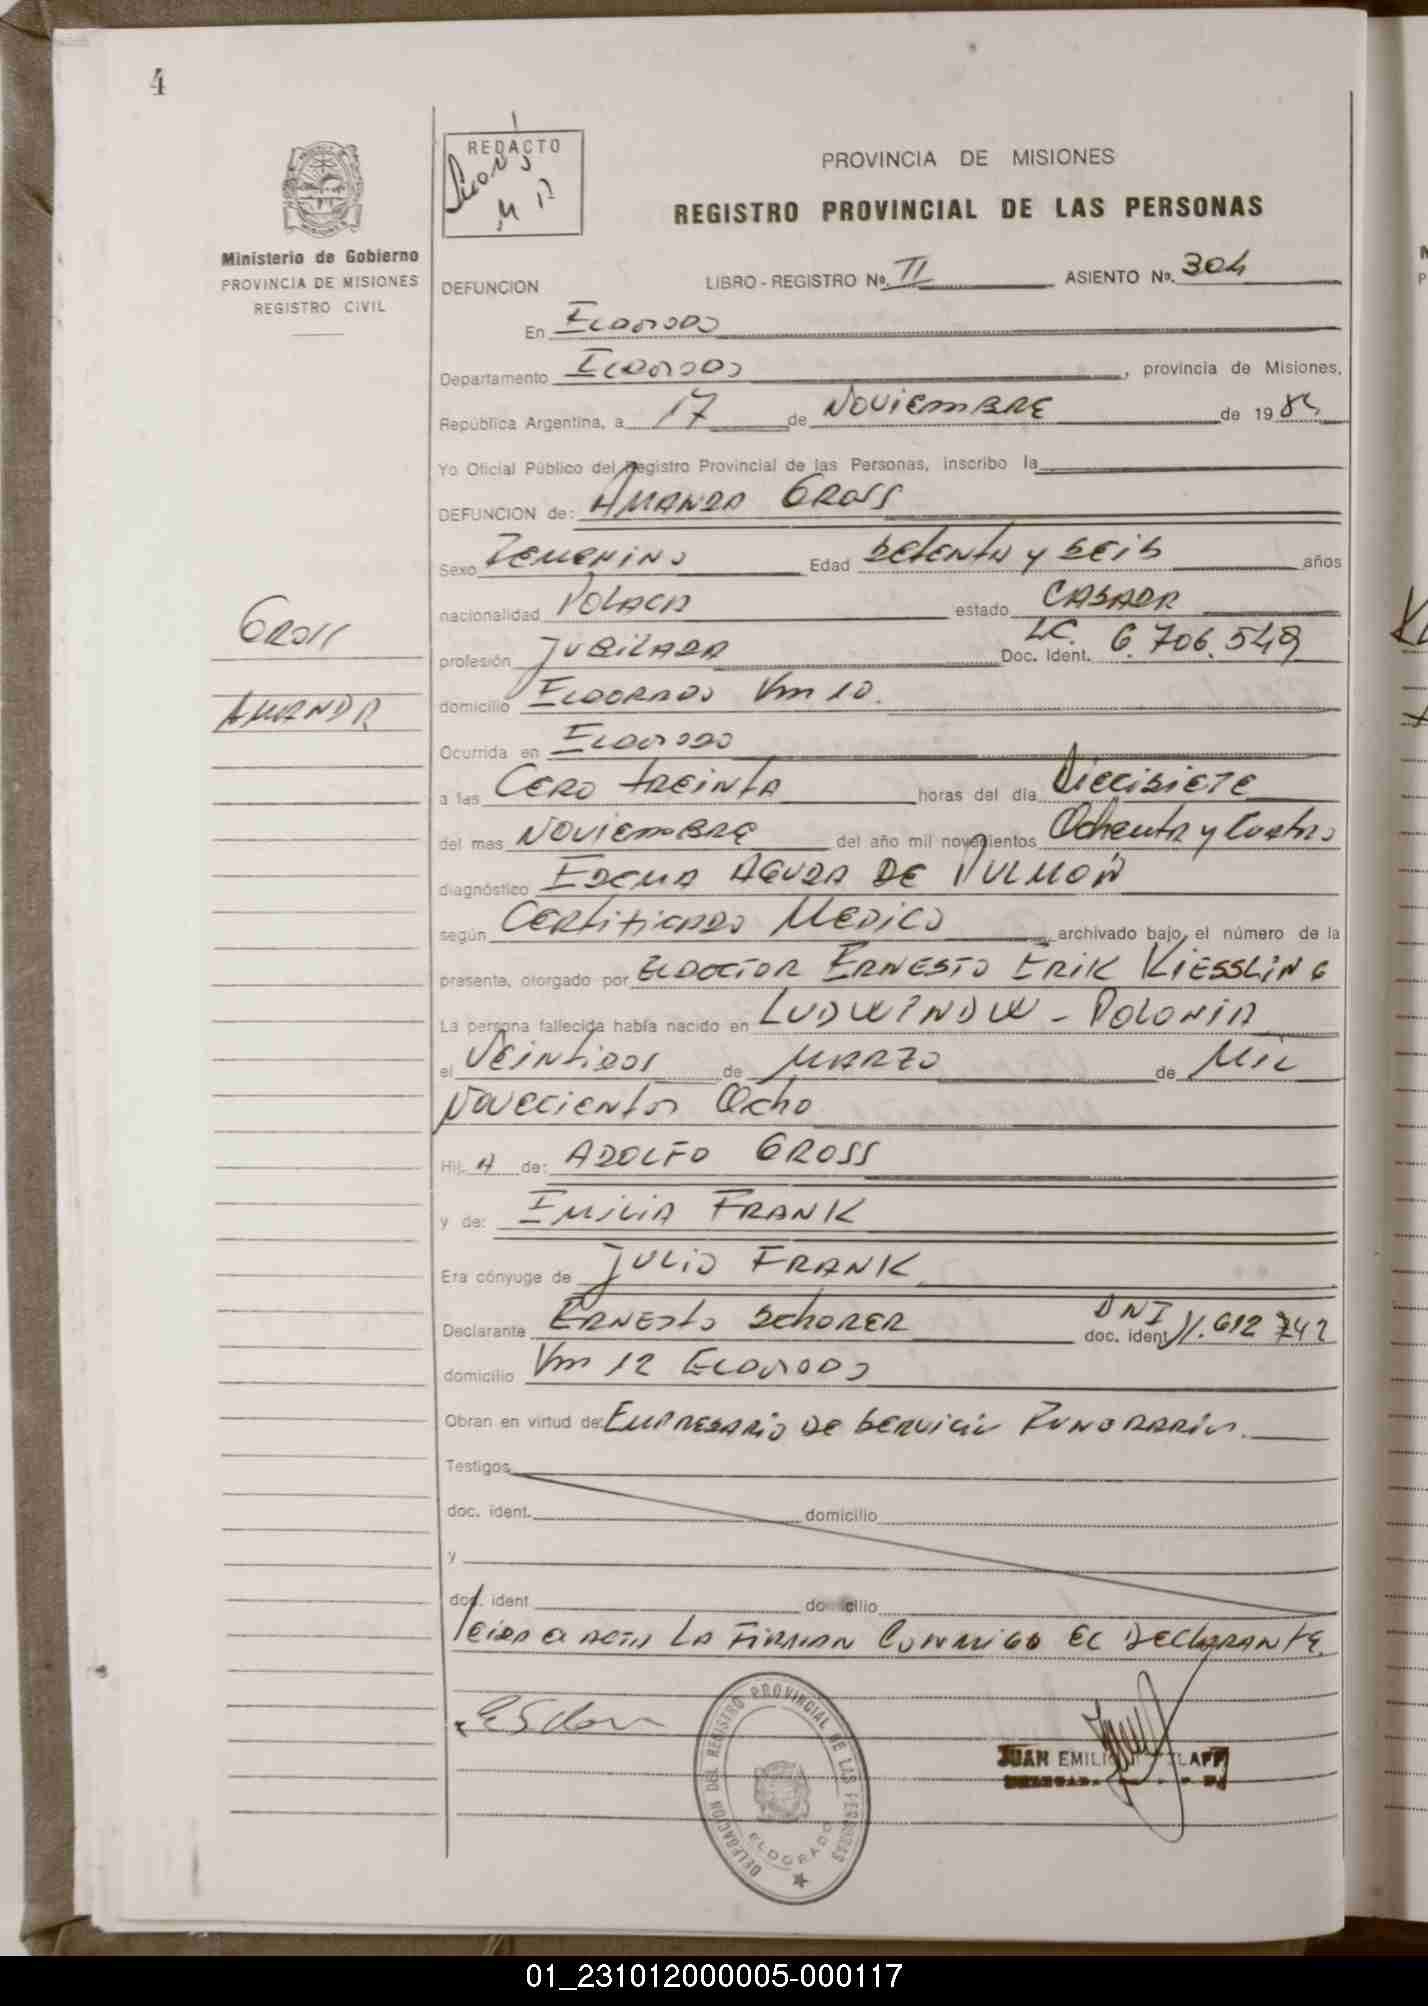 4
REDACTO
PROVINCIA DE MISIONES
REGISTRO PROVINCIAL DE LAS PERSONAS
Ministerio de Gobierno
PROVINCIA DE MISIONES
REGISTRO CIVIL
DEFUNCION LIBRO - REGISTRO Nº. II ASIENTO Nº. 304
En ELDORADO
Departamento ELDORADO, provincia de Misiones,
República Argentina, a 17 de NOVIEMBRE de 1984
Yo Oficial Público del Registro Provincial de las Personas, inscribo la
DEFUNCION de: AMANDA GROSS
Sexo FEMENINO Edad SETENTA y SEIS años
nacionalidad POLACA estado CASADA
GROSS
profesión JUBILADA Doc. Ident. LC. 6.706.549
AMANDA
domicilio ELDORADO Km 10.
Ocurrida en ELDORADO
a las CERO TREINTA horas del día DIECISIETE
del mes NOVIEMBRE del año mil novecientos Ochenta y Cuatro
diagnóstico EDEMA AGUDA DE PULMON
según CERTIFICADO MEDICO archivado bajo el número de la
presente, otorgado por EL DOCTOR ERNESTO ERIK KIESSLING
La persona fallecida había nacido en LUDWINDW - POLONIA
el VEINTIDOS de MARZO de MIL
NOVECIENTOS Ocho
Hij A de: ADOLFO GROSS
y de: EMILIA FRANK
Era cónyuge de JULIO FRANK
Declarante ERNESTO SCHORER DNI doc. ident 11.612 742
domicilio Km 12 ELDORADO
Obran en virtud de: EMPRESARIO DE SERVICIO FUNERARIO.
Testigos
doc. ident. domicilio
y
doc. ident domicilio
Leida el acta LA FIRMAN CONMIGO EL DECLARANTE.
DELEGACION DEL REGISTRO PROVINCIAL DE LAS PERSONAS
ELDORADO
JUAN EMILIO
01_231012000005-000117